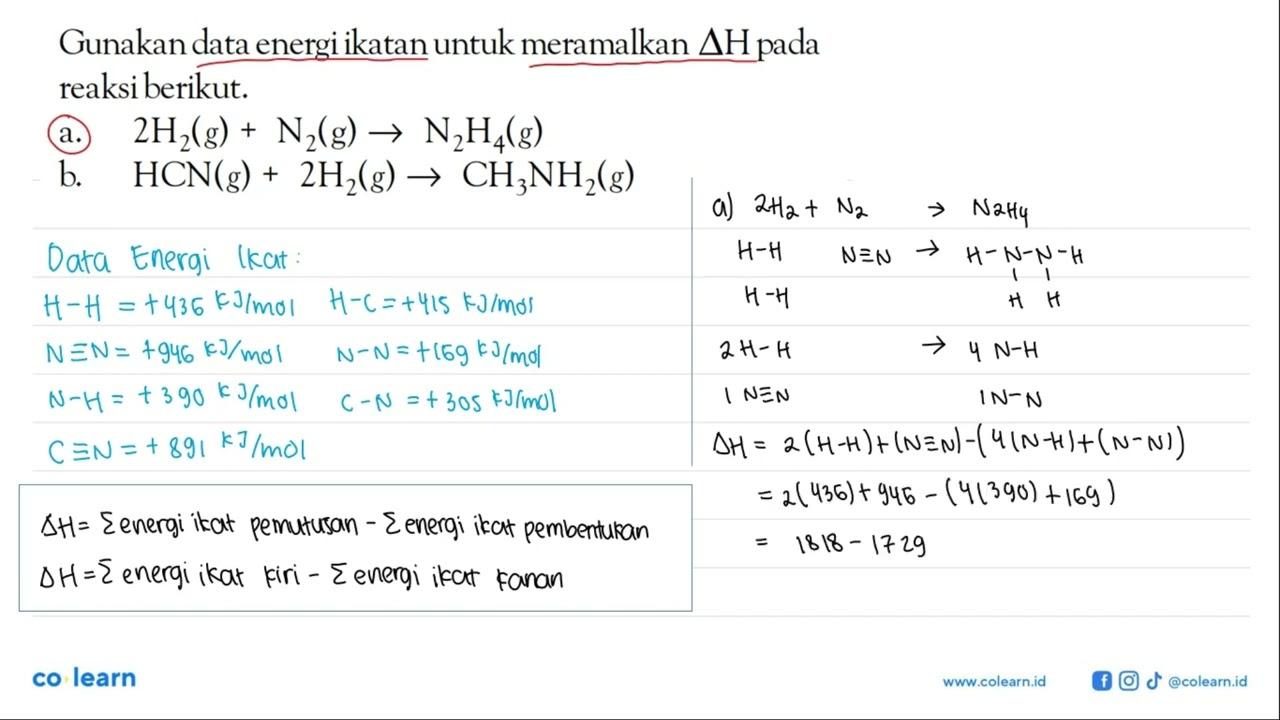 Gunakan data energi ikatan untuk meramalkan ΔH pada
reaksi berikut.
a. 2H₂(g) + N₂(g) → N₂H₄(g)
b. HCN(g) + 2H₂(g) → CH₃NH₂(g)
Data Energi Ikat:
H-H = +436 KJ/mol H-C = +415 KJ/mol
N≡N = +946 KJ/mol N-N = +169 KJ/mol
N-H = +390 KJ/mol C-N = +305 KJ/mol
C≡N = +891 KJ/mol
ΔH = Σ energi ikat pemutusan - Σ energi ikat pembentukan
ΔH = Σ energi ikat kiri - Σ energi ikat kanan
a) 2H₂ + N₂ → N₂H₄
H-H N≡N → H-N-N-H
H-H H H
2 H-H → 4 N-H
1 N≡N 1 N-N
ΔH = 2(H-H)+(N≡N)-(4(N-H)+(N-N))
= 2(436)+946-(4(390)+169)
= 1818-1729
co learn
www.colearn.id @colearn.id